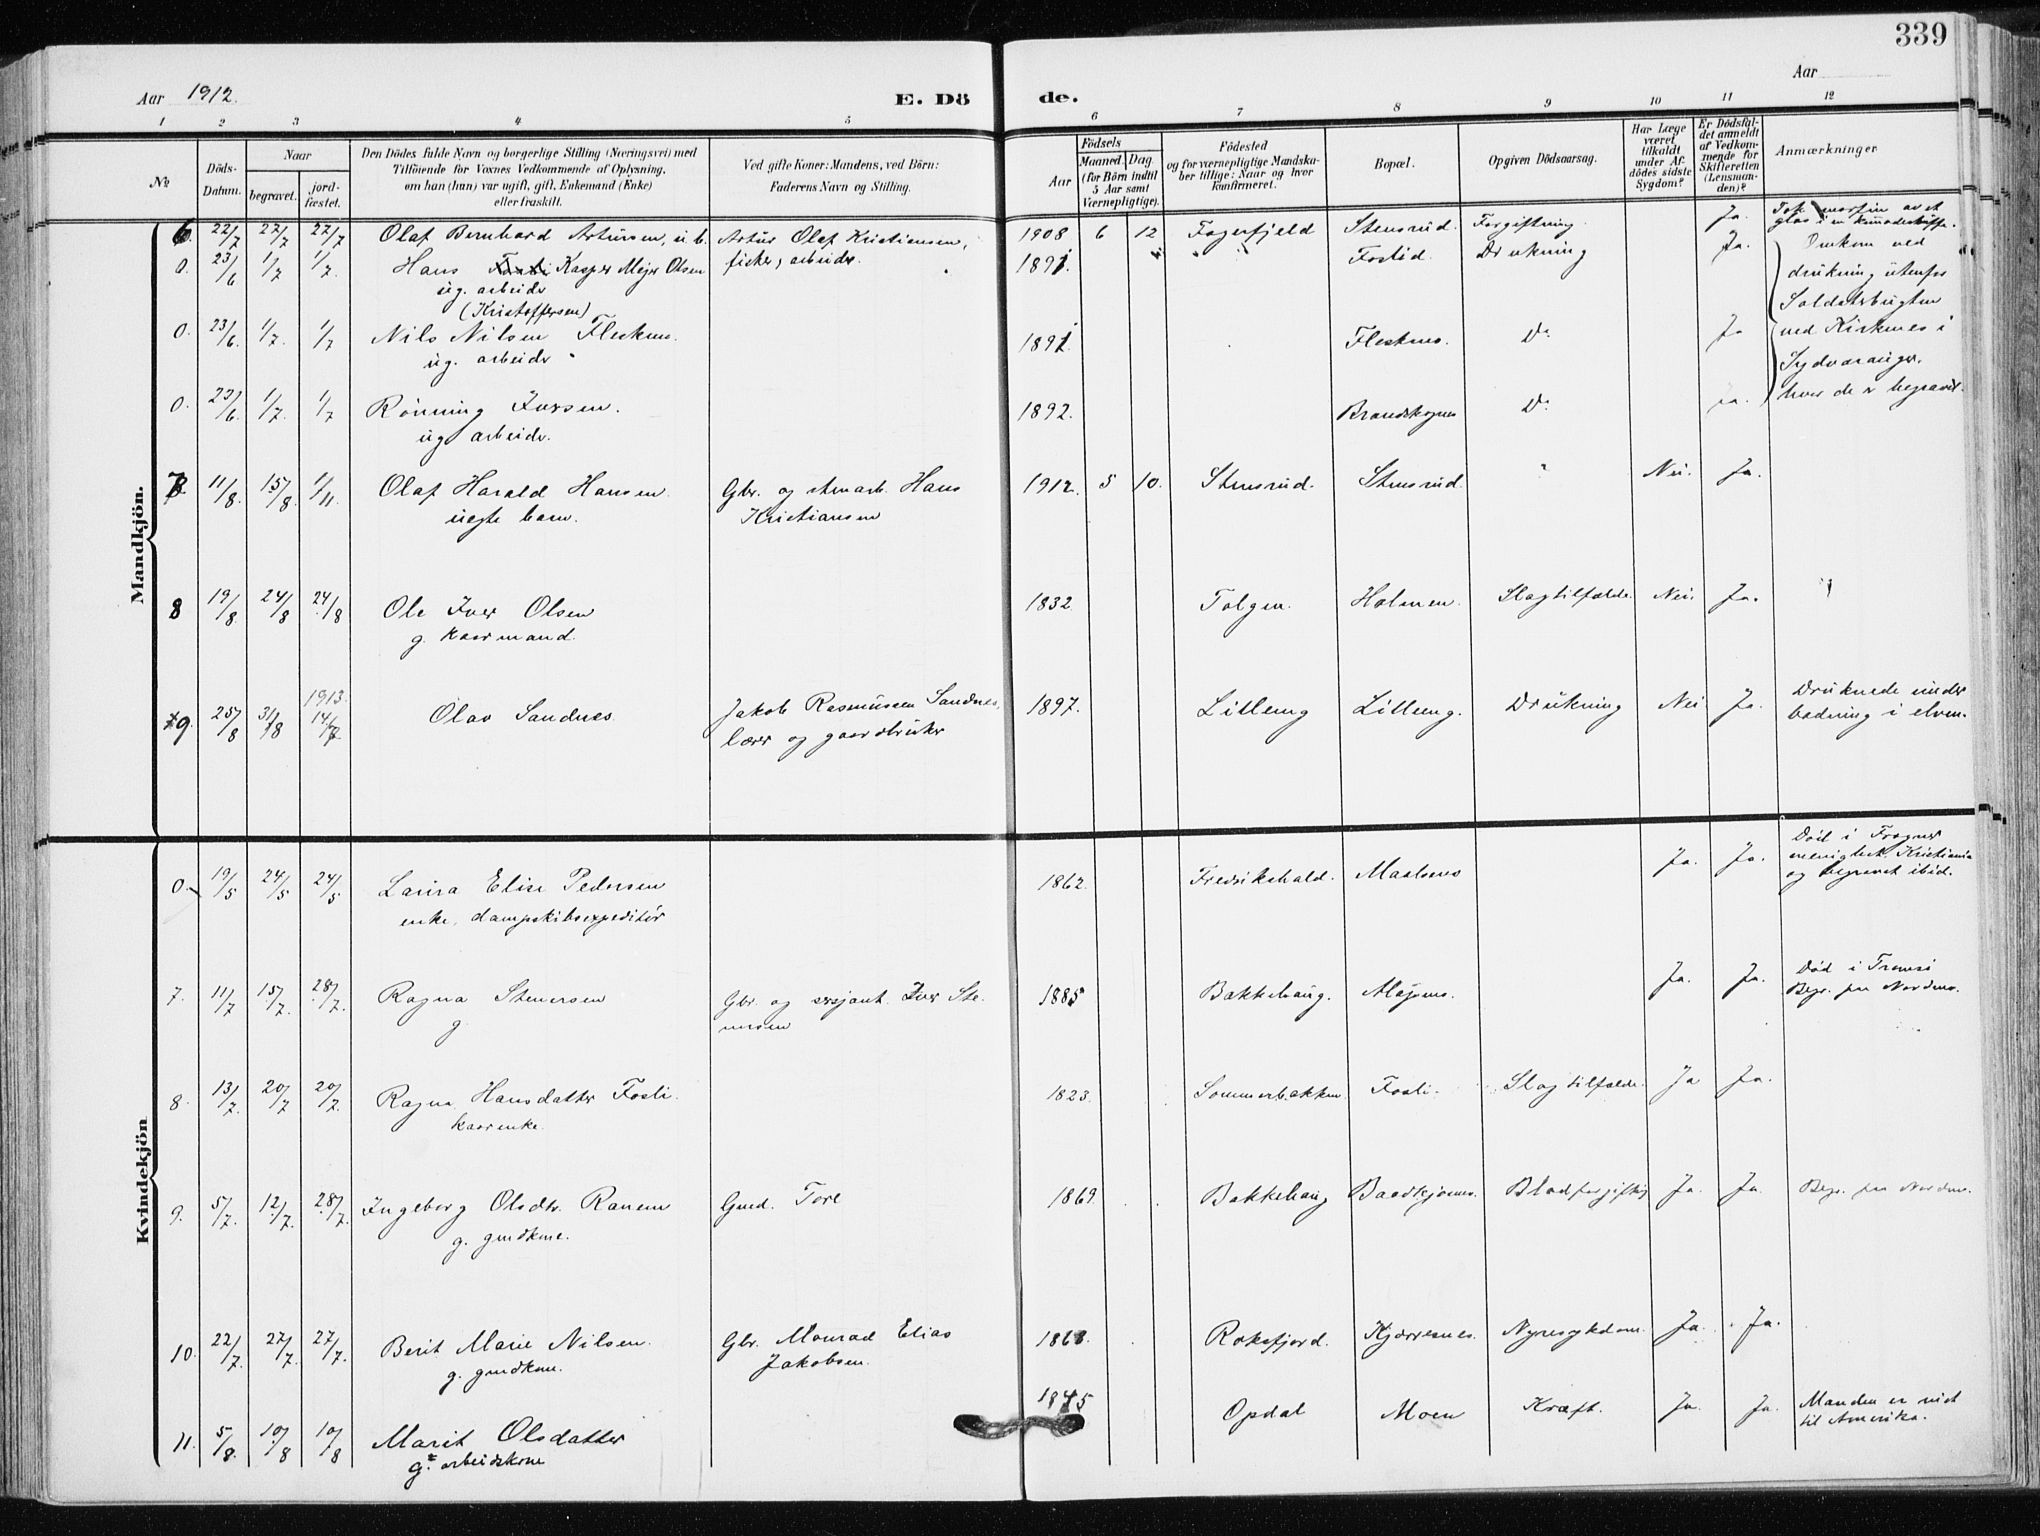 339
Aar 1912.
E. Dö de.
Aar
1 2 3 4 5 6 7 8 9 10 11 12
№
Döds-Datum.
Naar
begravet.
jord-fæstet.
Den Dödes fulde Navn og borgerlige Stilling (Næringsvei) med
Tilföiende for Voxnes Vedkommende af Oplysning,
om han (hun) var ugift, gift, Enkemand (Enke)
eller fraskilt.
Ved gifte Koner: Mandens, ved Börn:
Faderens Navn og Stilling.
Födsels
Aar
Maaned. Dag
(for Börn indtil
5 Aar samt
Værnepligtige).
Födested
og for værnepligtige Mandska-
ber tillige: Naar og hvor
konfirmeret.
Bopæl.
Opgiven Dödsaarsag.
Har Læge
været
tilkaldt
under Af-
dödes sidste
Sygdom?
Er Dödsfal-
det anmeldt
af Vedkom-
mende for
Skifteretten
(Lensman-
den)?
Anmærkninger
Mandkjön.
6. 22/7 27/7 27/7 Olaf Bernhard Artursen, u. b. Artur Olaf Kristiansen, 1908 6 12 Fagerfjeld Stensrud. Forgiftning Ja.
fisker, arbeider.
0. 23/6 1/7 1/7. Hans Kasper Mejer Olsen 1891. Foslid. Drukning Ja. Omkom ved
ug. arbeider drukning utenfor
(Kristoffersen) Soldatbugten
0. 23/6. 1/7. 1/7 Nils Nilsen Fleskmo. 1891. Fleskmo. Do Ja ved Kirkenes i
ug. arbeider Sydvaranger,
0. 23/6. 1/7. 1/7 Rønning Iversen. 1892. Brandskognes Do Ja. hvor de er begravet.
ug. arbeider.
7. 11/8. 15/8. 1/11. Olaf Harald Hansen. Gbr. og stenarb. Hans 1912. 5 10. Stensrud. Stensrud. Nei. Ja.
uegte barn. Kristiansen
8 19/8. 24/8 24/8 Ole Iver Olsen 1832 Tolgen. Holmen. Slagtilfælde. Nei. Ja.
g. kaarmand.
9. 25/8 31/8 1913. 14/7 Olav Sandnes. Jakob Rasmussen Sandnes, 1897. Lilleng Lilleng. Drukning Nei Ja. Druknede under
lærer og gaardbruker badning i elven.
Kvindekjön
0. 19/5 24/5 24/5 Laura Elise Pedersen 1862. Fredrikshald. Maalsnes Ja. Ja. Død i Frogner
enke, dampskibsexpeditør menighet, Kristiania
og begravet ibid.
7. 11/7 15/7. 28/7. Ragna Stenersen Gbr. og sersjant Iver Ste- 1885 Bakkehaug. Ja. Ja. Død i Tromsø
g. nersen Begr. paa Nordmo.
8. 13/7. 20/7 20/7. Ragna Hansdatter Fosli. 1823. Sommerbakken Fosli. Slagtilfælde. Ja Ja.
kaarenke.
9. 5/7. 12/7. 28/7. Ingeborg Olsdtr. Ranem Gmd. Tore 1869. Bakkehaug Baadkjomo. Blodforgiftng Ja. Ja. Begr. paa Nordmo.
g. gmdkone.
10. 22/7. 27/7. 27/7. Berit Marie Nilsen. Gbr. Monrad Elias 1868 Roksfjord. Kjærresnes. Nyresykdom. Ja. Ja.
g. gmdkone. Jakobsen.
11. 5/8. 10/8 10/8 Marit Olsdatter 1845 Opdal Moen Kræft. Ja. Ja. Manden er reist
g. arbeidskone til Amerika.